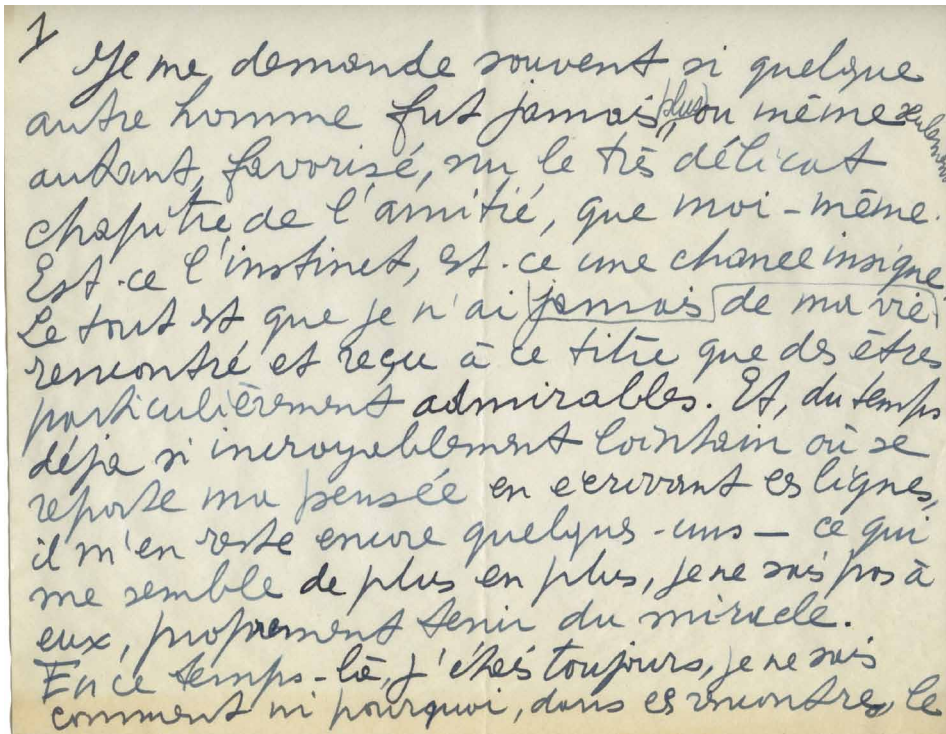 1
Je me demande souvent si quelque
autre homme fut jamais plus, ou même seulement
autant, favorisé, sur le très délicat
chapitre de l'amitié, que moi-même.
Est-ce l'instinct, est-ce une chance insigne
Le tout est que je n'ai jamais de ma vie
rencontré et reçu à ce titre que des êtres
particulièrement admirables. Et, du temps
déjà si incroyablement lointain où se
reporte ma pensée en écrivant ces lignes,
il m'en reste encore quelques-uns — ce qui
me semble de plus en plus, je ne sais pas à
eux, proprement tenir du miracle.
En ce temps-là, j'étais toujours, je ne sais
comment ni pourquoi, dans ces rencontres, le